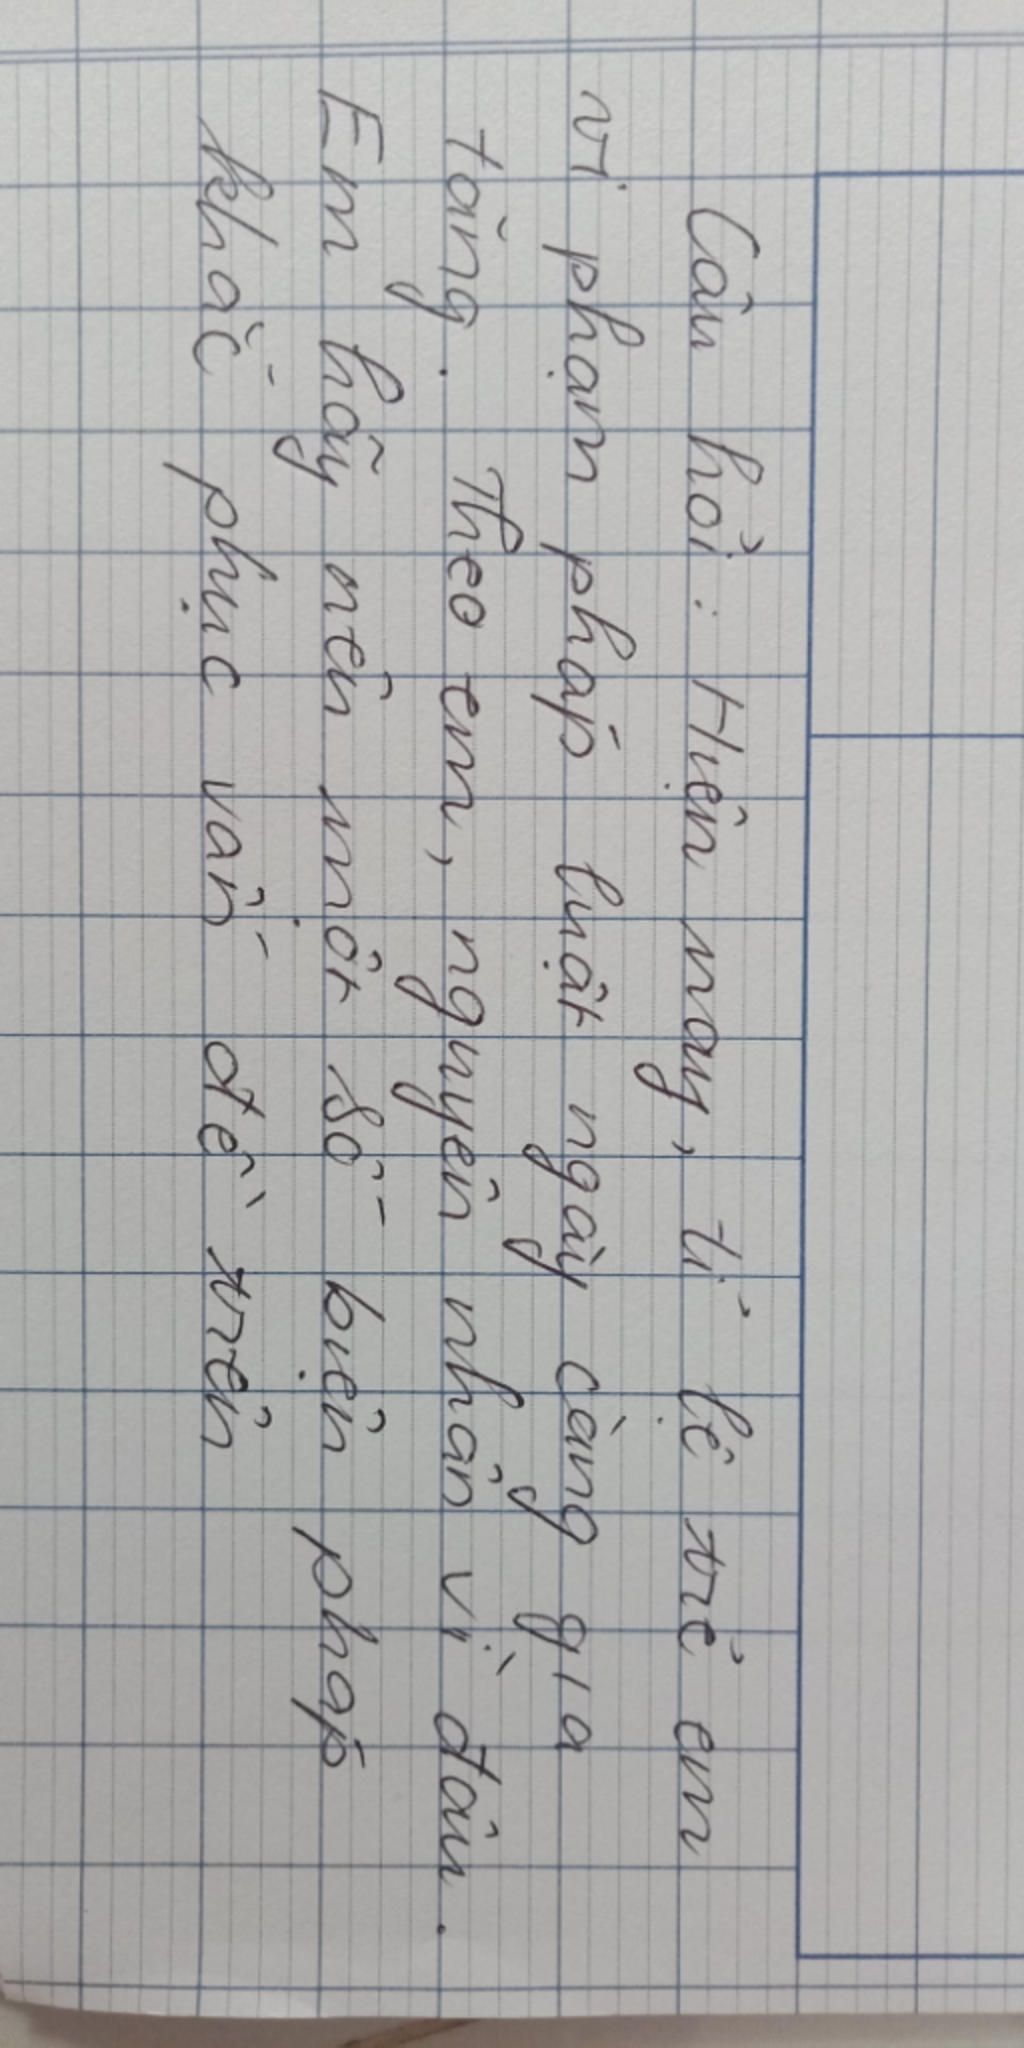 Câu hỏi: Hiện nay, tỉ lệ trẻ em
vi phạm pháp luật ngày càng gia
tăng. Theo em, nguyên nhân vì đâu.
Em hãy nên một số biện pháp
khắc phục vấn đề trên